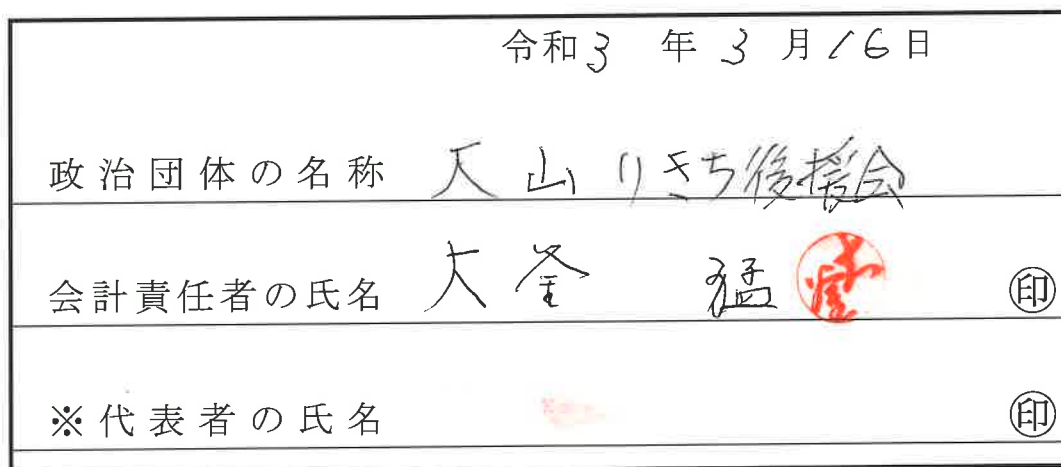 令和3 年 3 月 16 日
政治団体の名称 大山りきち後援会
会計責任者の氏名 大釜 猛 ㊞
※代表者の氏名 ㊞